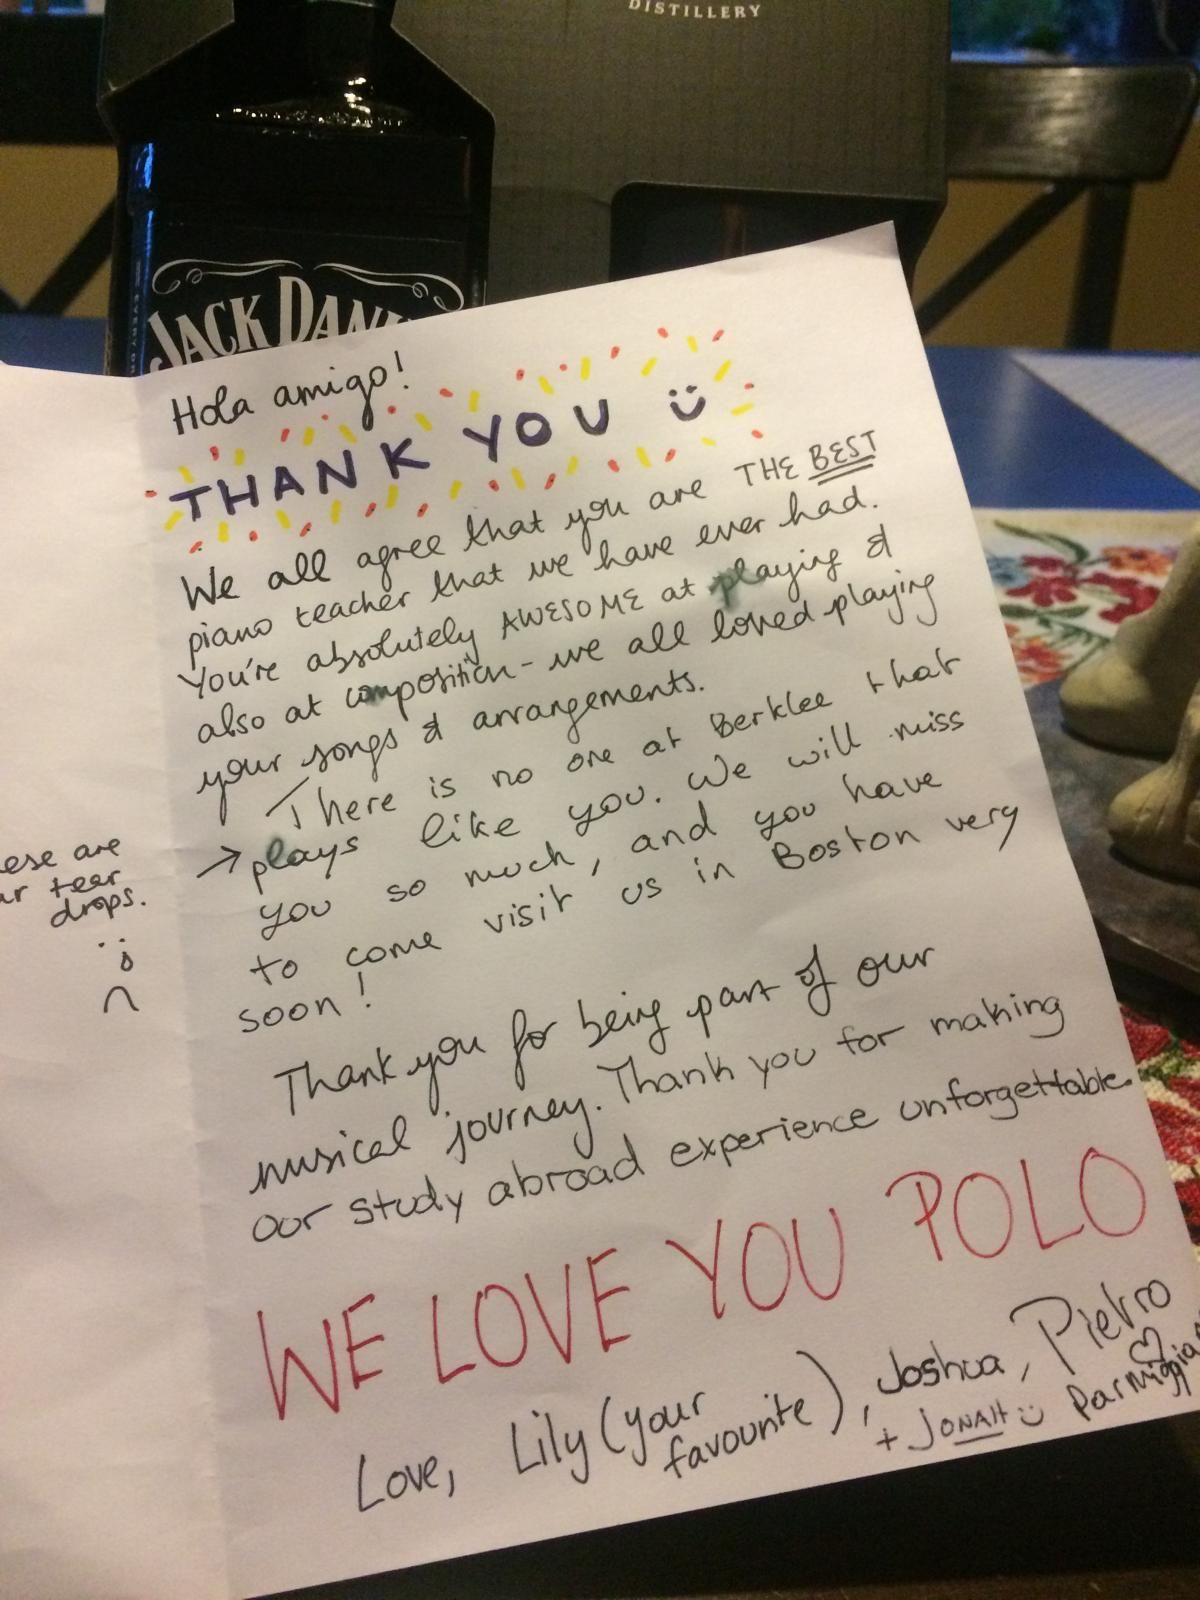 DISTILLERY
JACK DANI
Hola amigo!
THANK YOU
We all agree that you are THE BEST
piano teacher that we have ever had.
You're absolutely AWESOME at playing &
also at composition - we all loved playing
your songs & arrangements.
There is no one at Berklee that
→ plays like you. We will miss
you so much, and you have
to come visit us in Boston very
soon!
ese are
r tear
drops.
Thank you for being part of our
musical journey. Thank you for making
our study abroad experience unforgettable.
WE LOVE YOU POLO
Love, Lily (your
favourite), Joshua, Pietro
+ JONAH Parmiggian